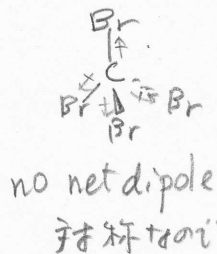 Br
C
Br Br
Br
no net dipole
対称なので